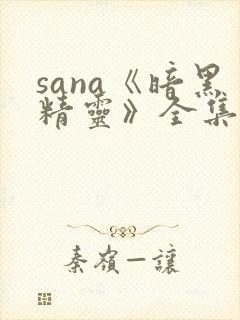 sana《暗黑
精靈》全集
秦嶺一讓